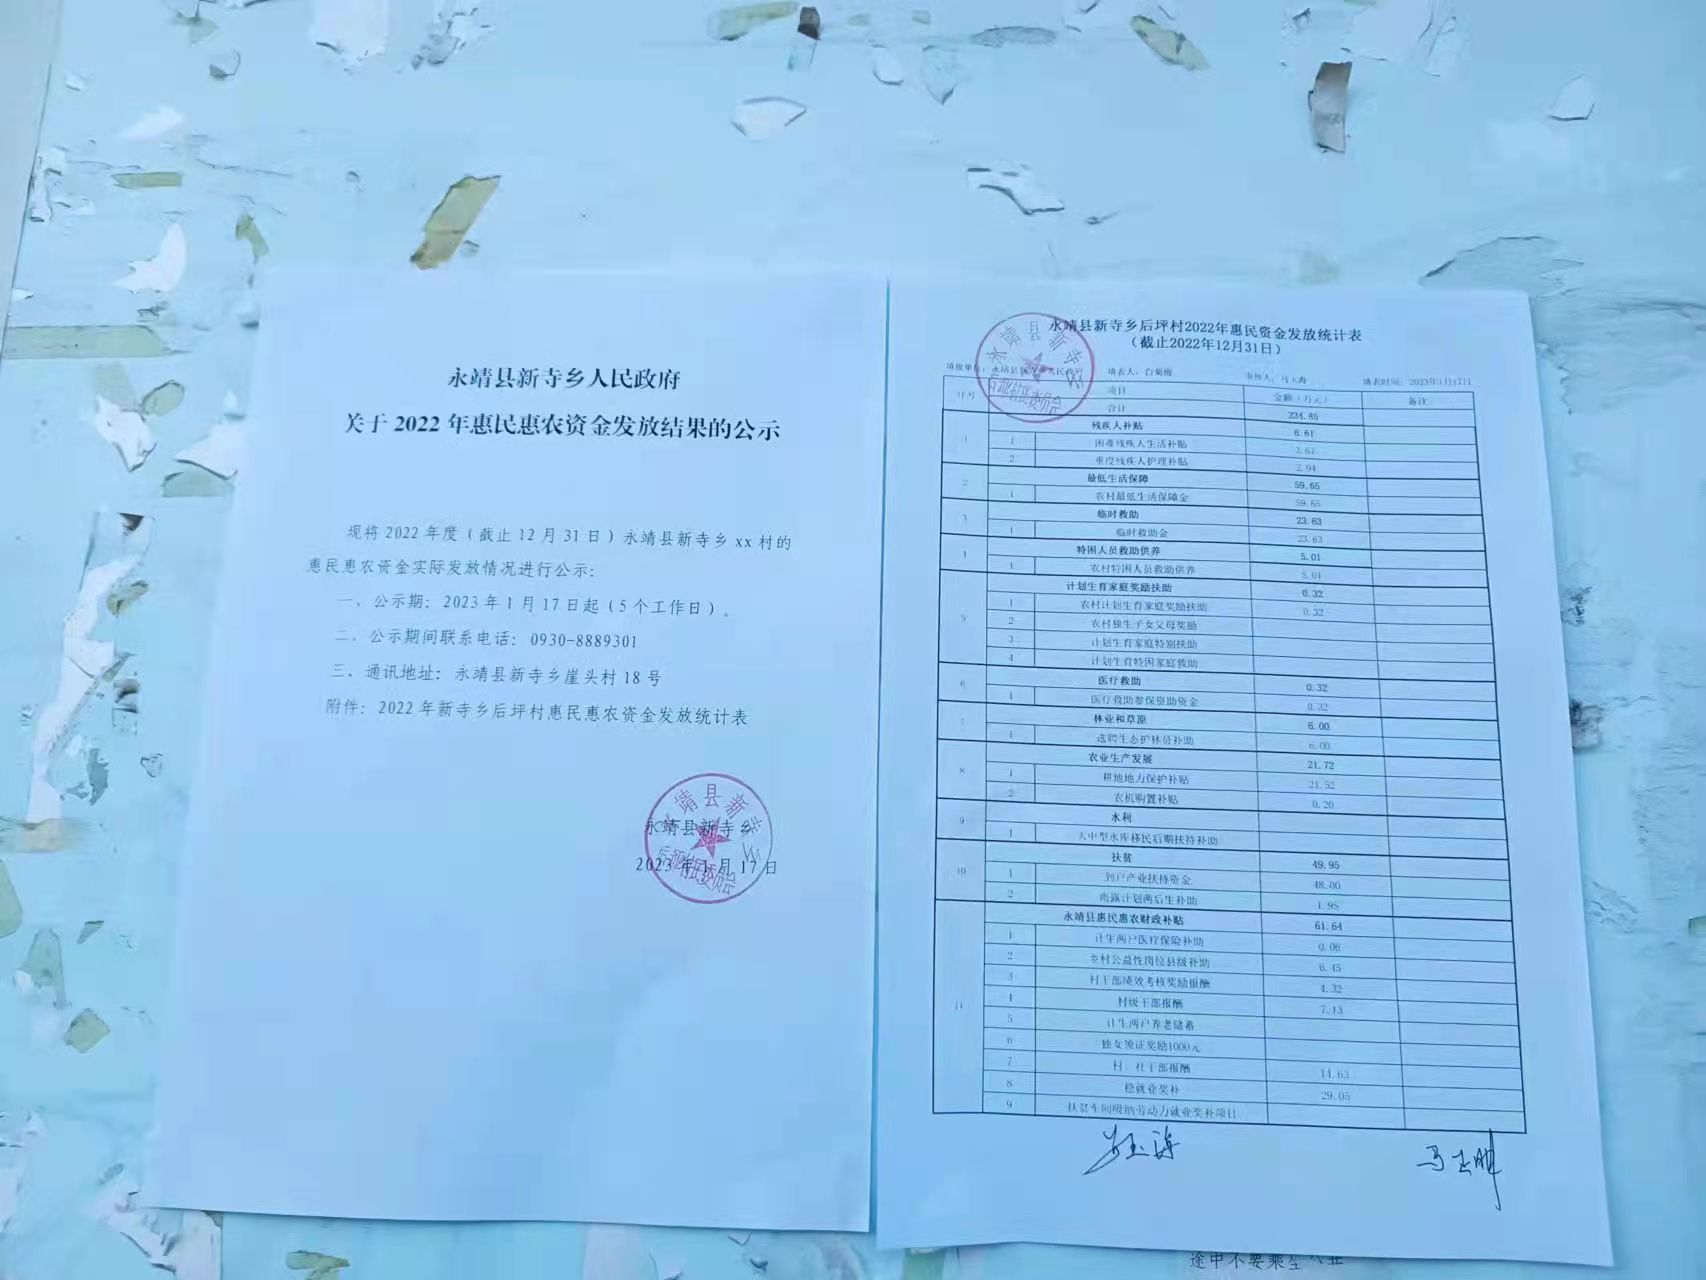 永靖县新寺乡人民政府
关于 2022 年惠民惠农资金发放结果的公示
现将 2022 年度（截止 12 月 31 日）永靖县新寺乡 xx 村的
惠民惠农资金实际发放情况进行公示：
一、公示期：2023 年 1 月 17 日起（5 个工作日）。
二、公示期间联系电话：0930-8889301
三、通讯地址：永靖县新寺乡崖头村 18 号
附件：2022 年新寺乡后坪村惠民惠农资金发放统计表
永靖县新寺乡
2023 年 1 月 17 日
永靖县新寺乡后坪村2022年惠民资金发放统计表
（截止2022年12月31日）
填报单位：永靖县新寺乡人民政府 填表人：白菊梅 审核人：马玉海 填表时间：2023年1月17日
序号 项目 金额（万元） 备注
合计 234.85
1 残疾人补贴 6.61
1 困难残疾人生活补贴 3.67
2 重度残疾人护理补贴 2.94
2 最低生活保障 59.65
1 农村最低生活保障金 59.65
3 临时救助 23.63
1 临时救助金 23.63
4 特困人员救助供养 5.01
1 农村特困人员救助供养 5.01
5 计划生育家庭奖励扶助 0.32
1 农村计划生育家庭奖励扶助 0.32
2 农村独生子女父母奖励
3 计划生育家庭特别扶助
4 计划生育特困家庭救助
6 医疗救助 0.32
1 医疗救助参保资助资金 0.32
7 林业和草原 6.00
1 选聘生态护林员补助 6.00
8 农业生产发展 21.72
1 耕地地力保护补贴 21.52
2 农机购置补贴 0.20
9 水利
1 大中型水库移民后期扶持补助
10 扶贫 49.95
1 到户产业扶持资金 48.00
2 雨露计划两后生补助 1.95
11 永靖县惠民惠农财政补贴 61.64
1 计生两户医疗保险补助 0.06
2 乡村公益性岗位县级补助 6.45
3 村干部绩效考核奖励报酬 4.32
4 村级干部报酬 7.13
5 计生两户养老储蓄
6 独女领证奖励1000元
7 村、社干部报酬 14.63
8 稳就业奖补 29.05
9 扶贫车间吸纳劳动力就业奖补项目
途中不要乘坐